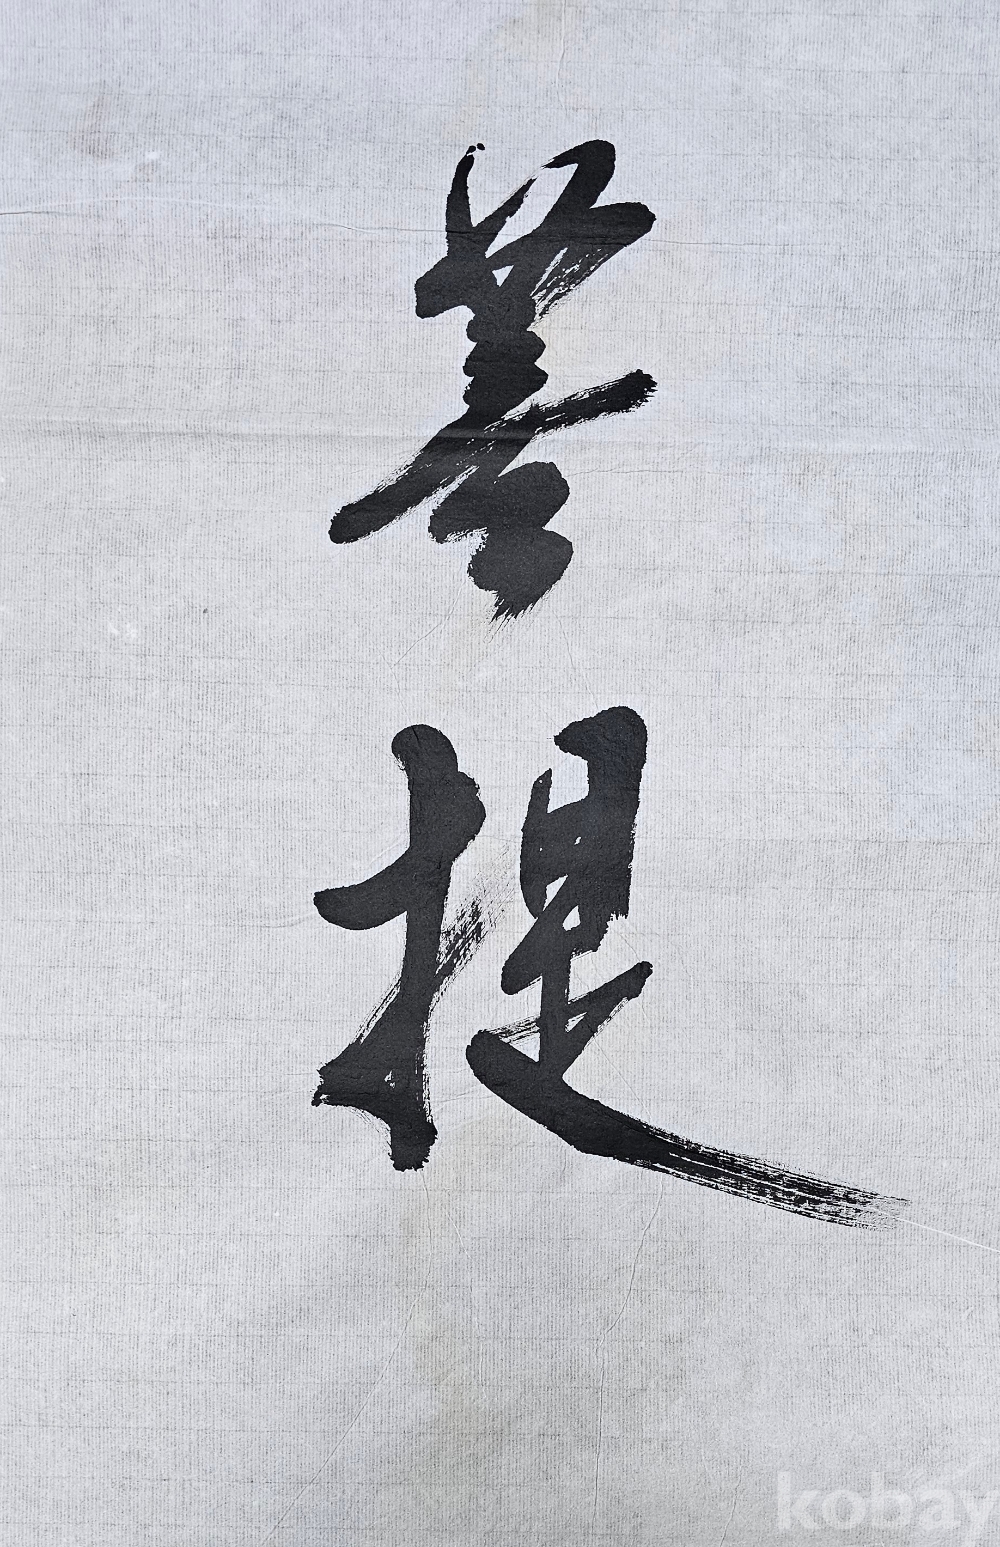 菩提
kobay